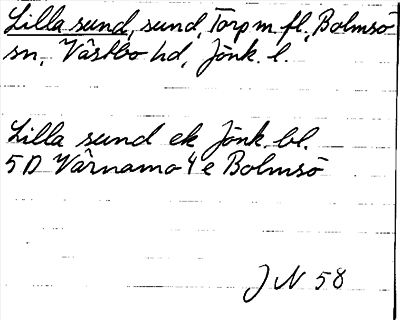 Lilla sund, sund, Torp m. fl., Bolmsö
sn, Västbo hd, Jönk. l.
Lilla sund ek Jönk. bl.
5 D Värnamo 4 e Bolmsö
J N 58